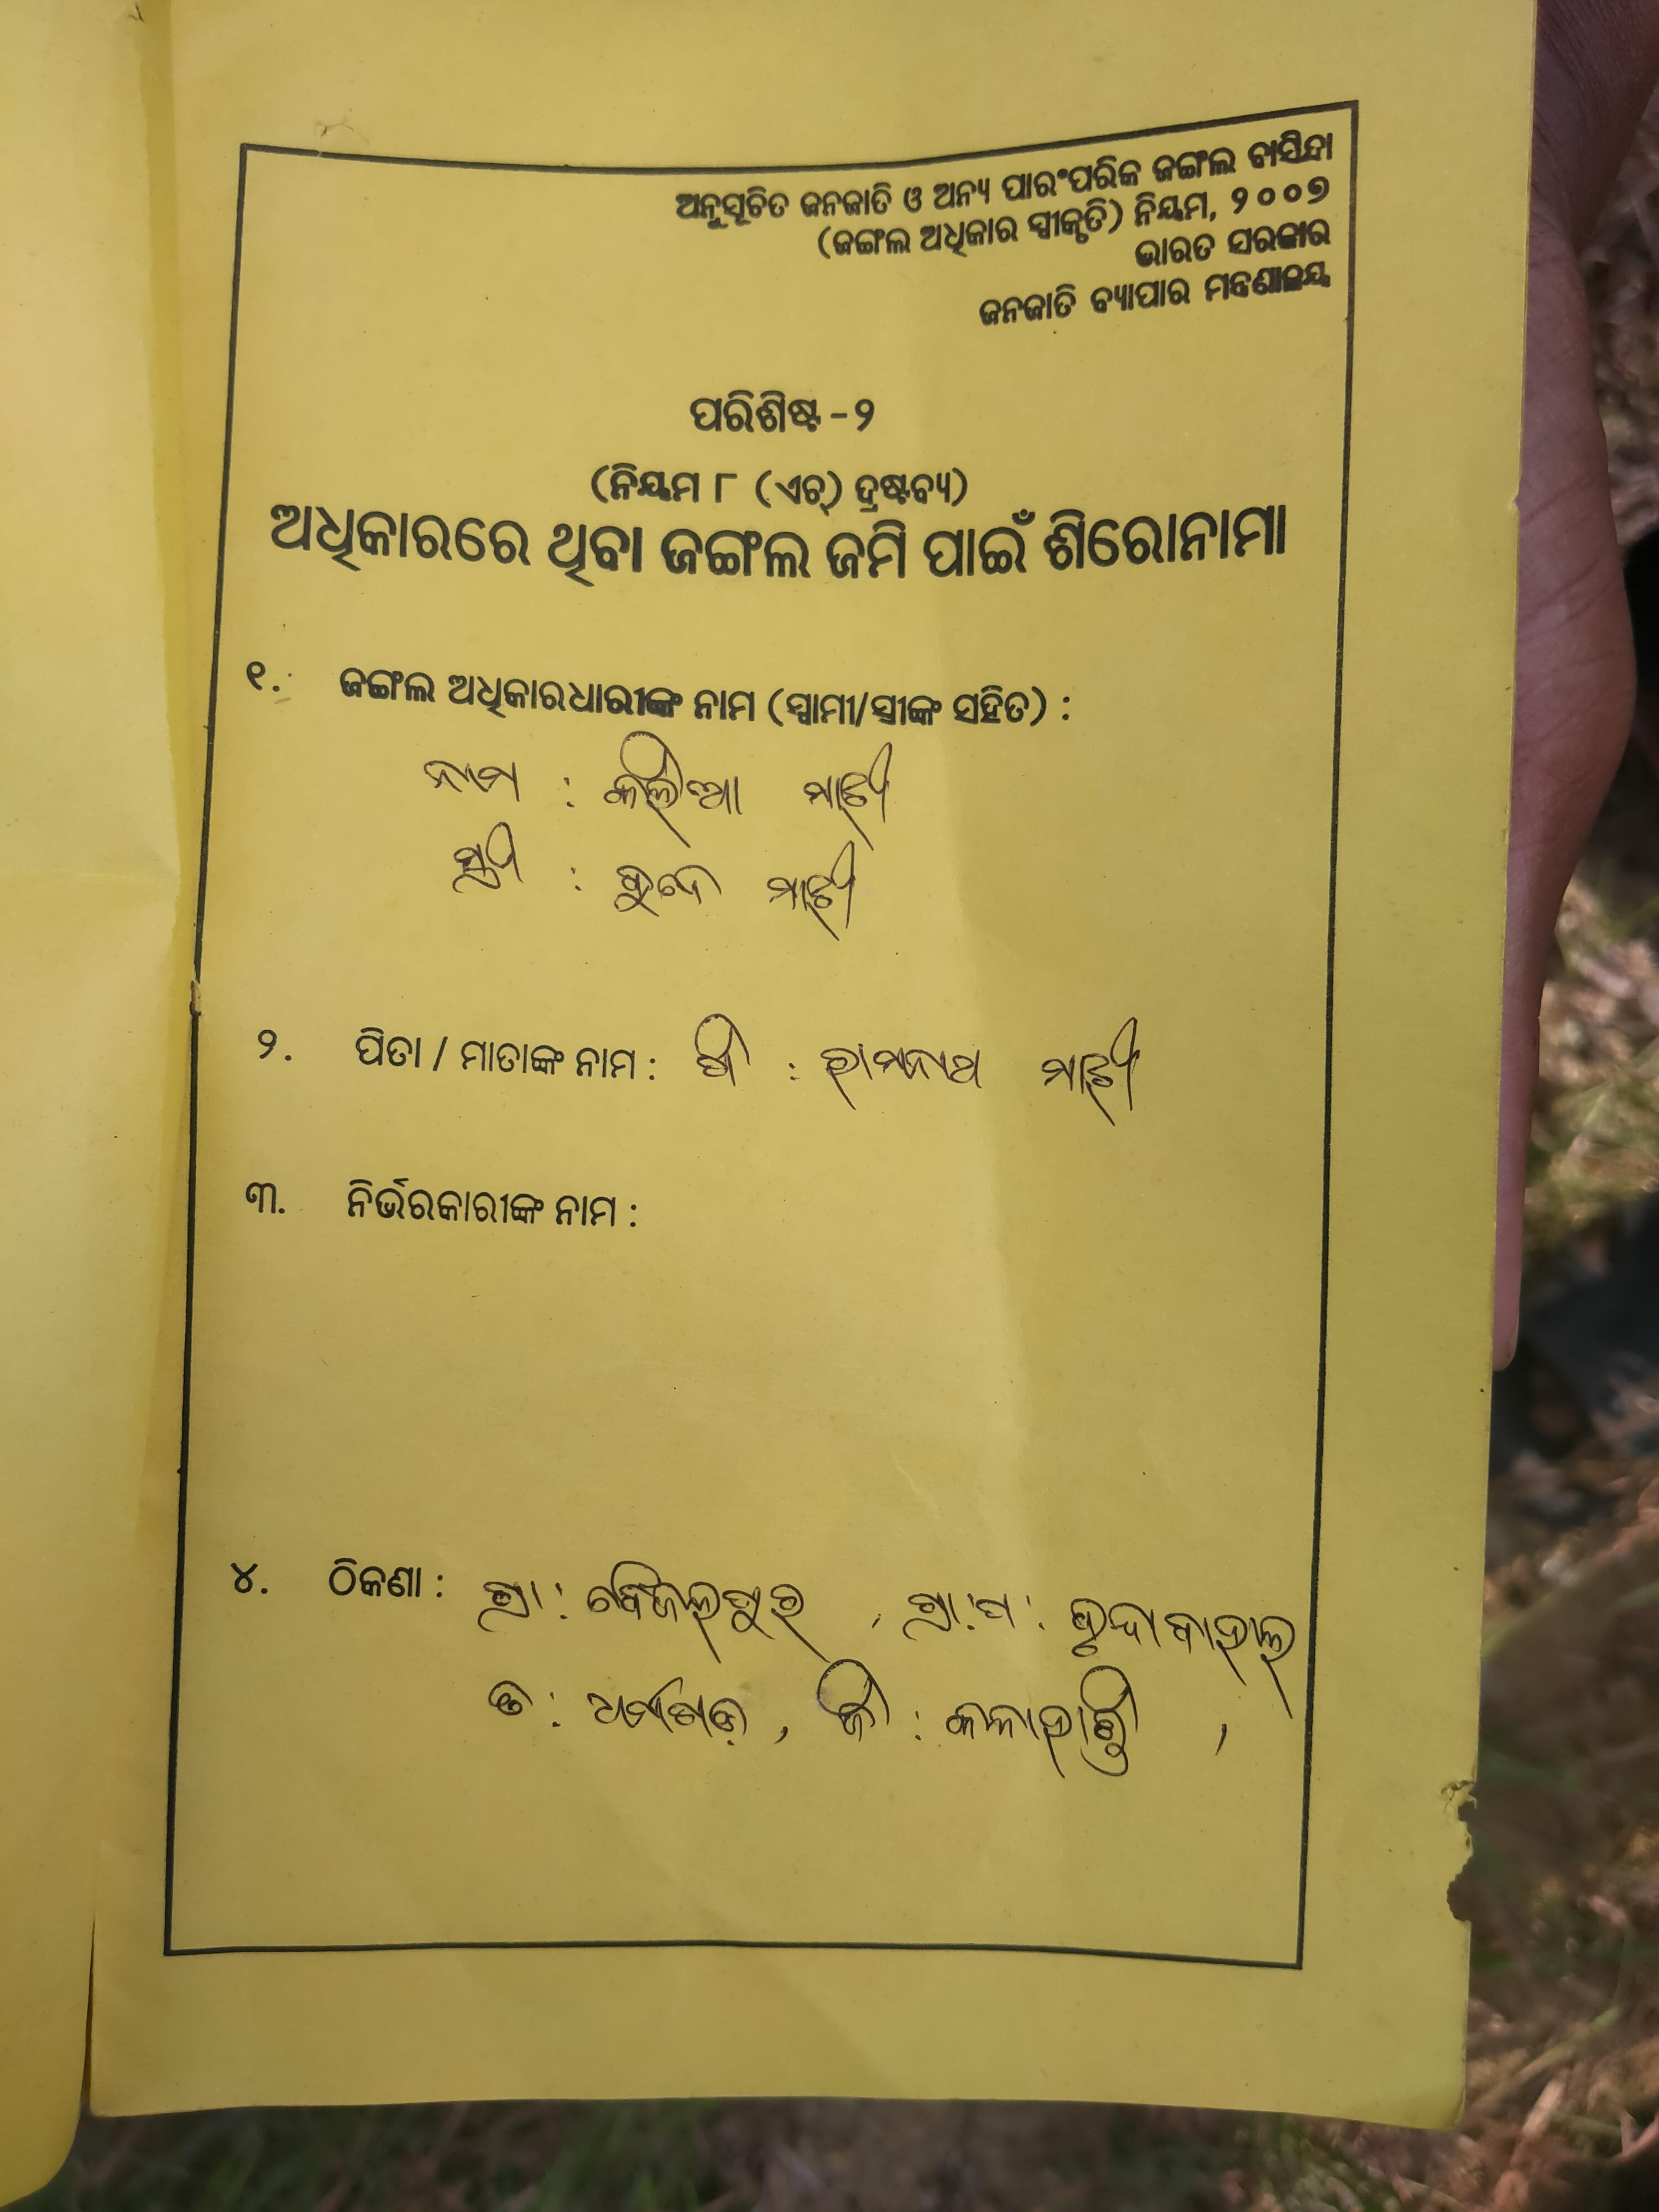 ଅନୁସୂଚିତ ଜନଜାତି ଓ ଅନ୍ୟ ପାରଂପରିକ ଜଙ୍ଗଲ ବାସିନ୍ଦା
(ଜଙ୍ଗଲ ଅଧିକାର ସ୍ୱୀକୃତି) ନିୟମ, ୨୦୦୭
ଭାରତ ସରକାର
ଜନଜାତି ବ୍ୟାପାର ମନ୍ତ୍ରଣାଳୟ
ପରିଶିଷ୍ଟ -୨
(ନିୟମ ୮ (ଏଚ୍) ଦ୍ରଷ୍ଟବ୍ୟ)
ଅଧିକାରରେ ଥିବା ଜଙ୍ଗଲ ଜମି ପାଇଁ ଶିରୋନାମା
୧. ଜଙ୍ଗଲ ଅଧିକାରଧାରୀଙ୍କ ନାମ (ସ୍ୱାମୀ/ସ୍ତ୍ରୀଙ୍କ ସହିତ) :
ନାମ : କଲିଆ ମାଝୀ
ସ୍ତ୍ରୀ : ମାଝୀ
୨. ପିତା / ମାତାଙ୍କ ନାମ : ପି : ରାମନାଥ ମାଝୀ
୩. ନିର୍ଭରକାରୀଙ୍କ ନାମ :
୪. ଠିକଣା : ଗ୍ରା : ବିଜଲପୁର , ଗ୍ରା:ପ :
ତ : ଧର୍ମଗଡ଼ , ଜି : କଳାହାଣ୍ଡି ,